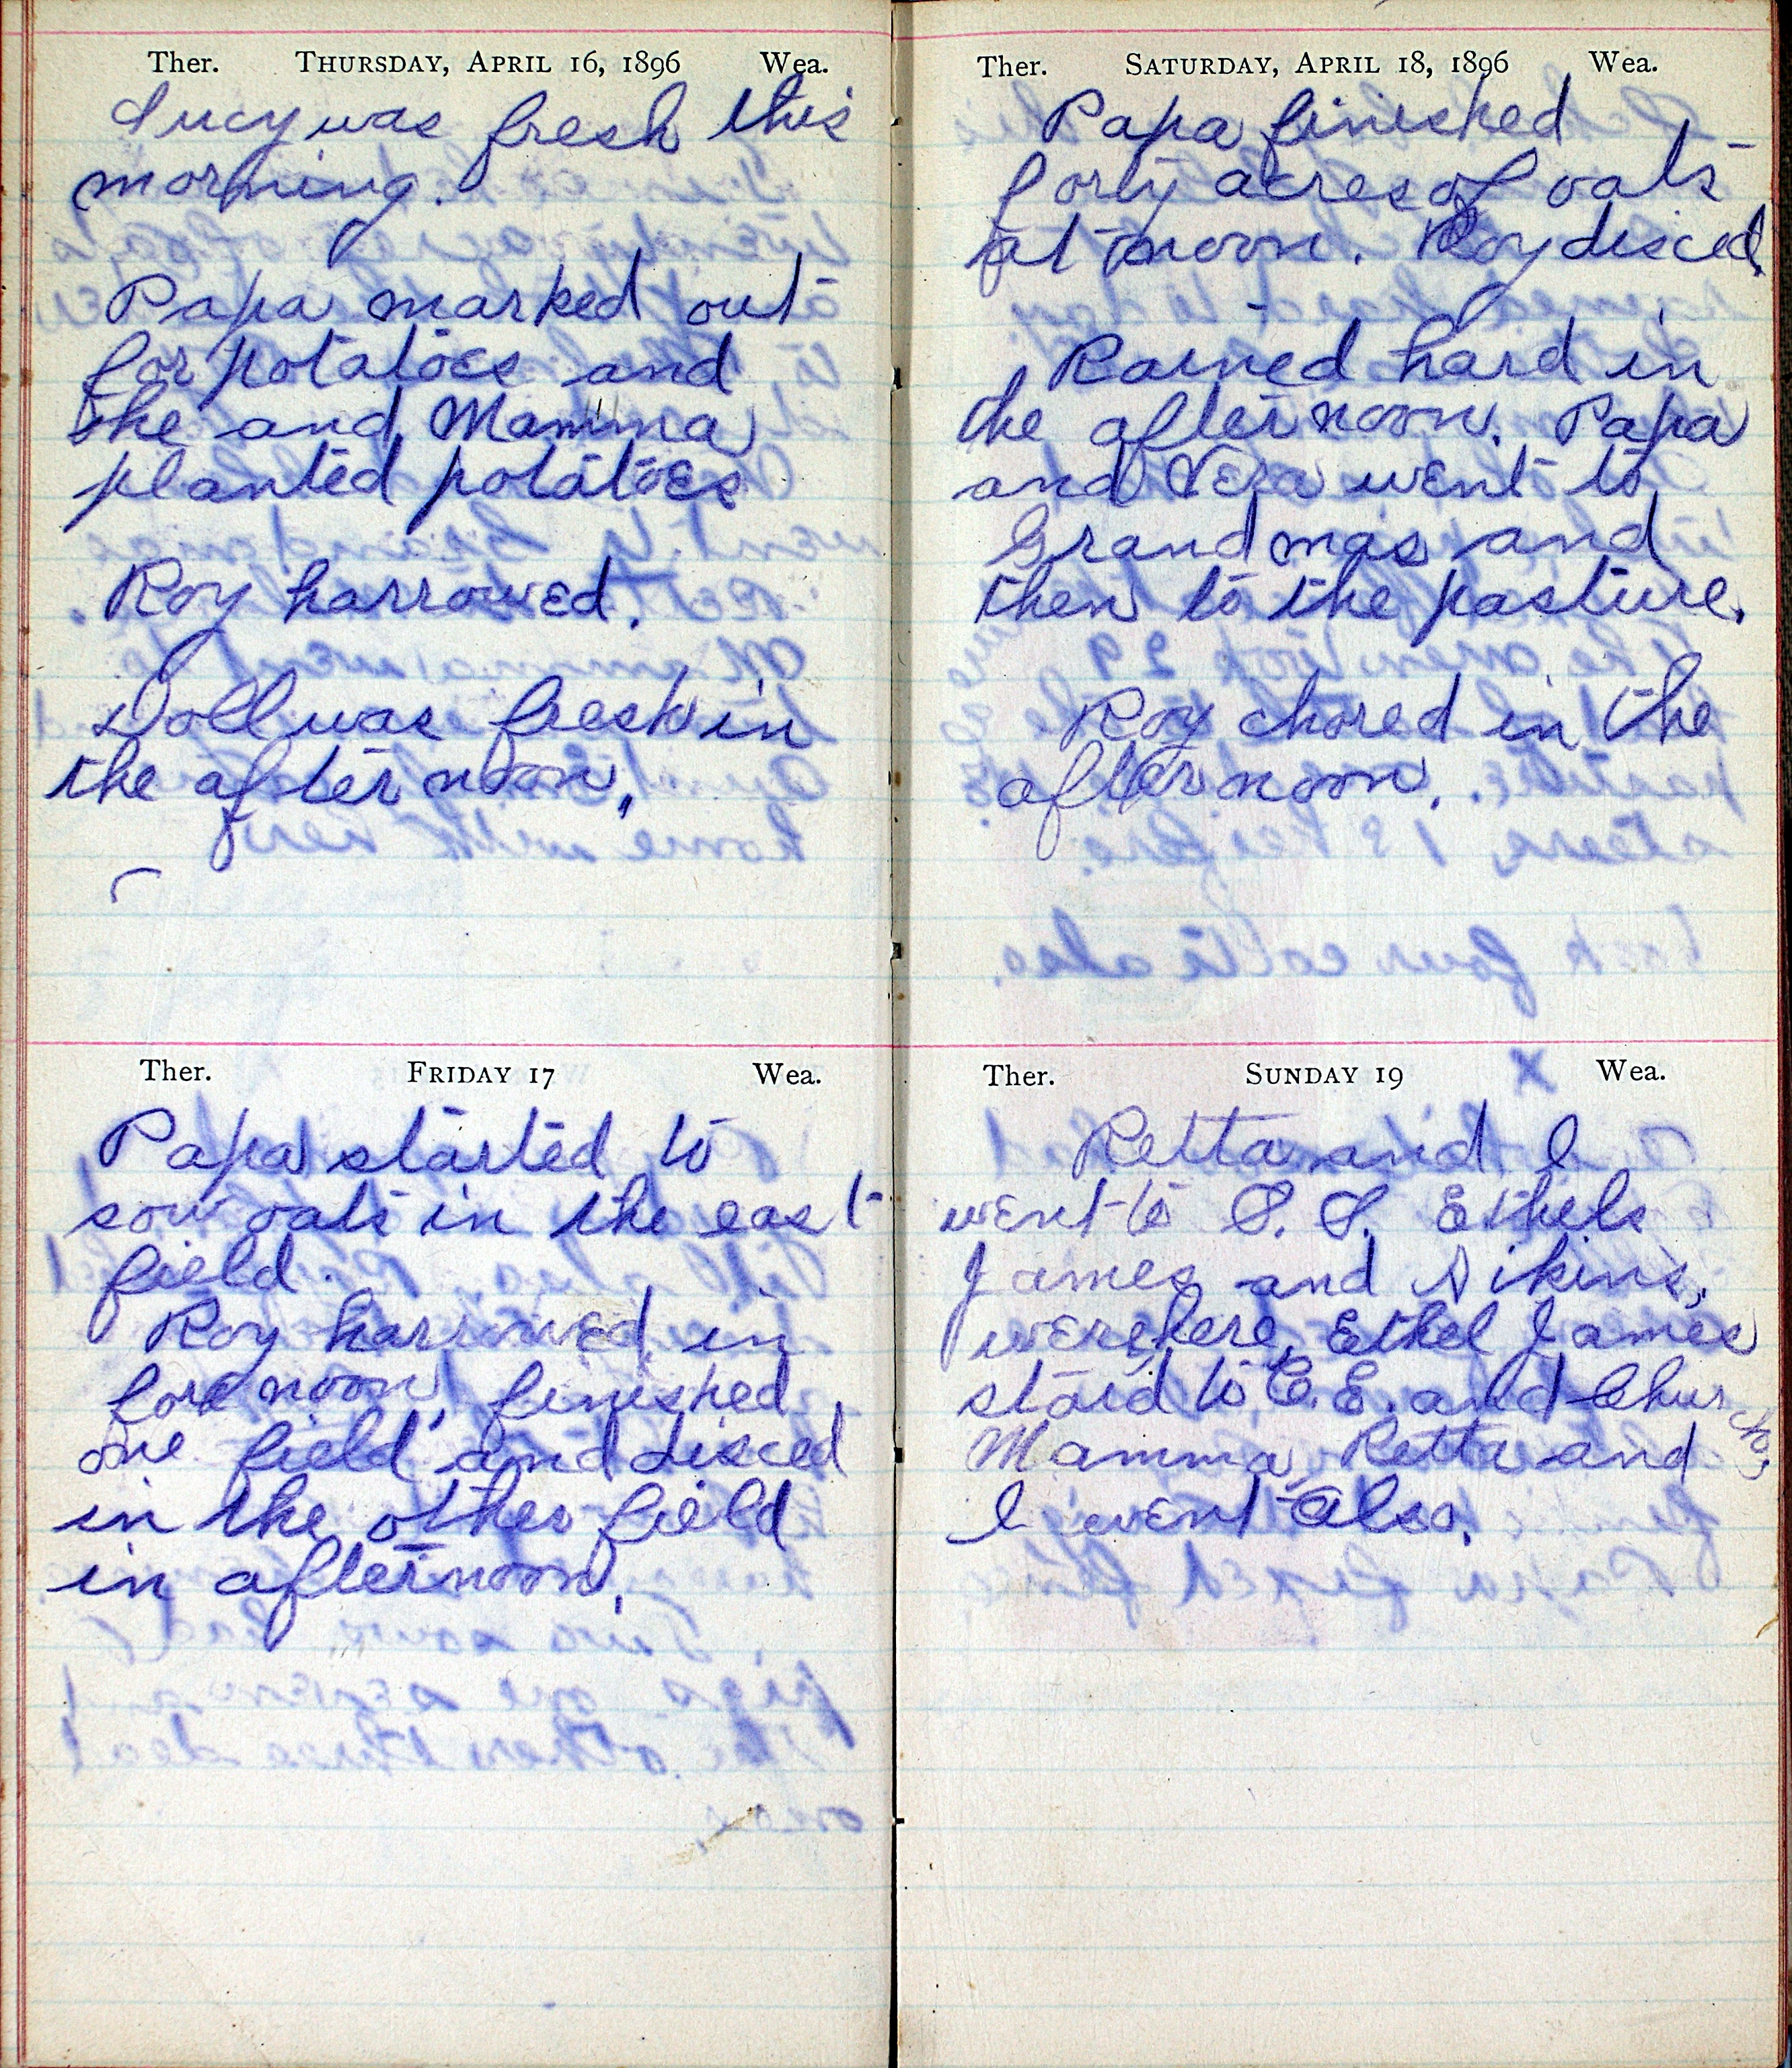 Ther. Thursday, April 16, 1896 Wea.
Lucy was fresh this
morning.
Papa marked out
for potatoes and
he and Mamma
planted potatoes
Roy harrowed.
Doll was fresh in
the afternoon.
Ther. Friday 17 Wea.
Papa started to
sow oats in the east
field.
Roy harrowed in
forenoon, finished
one field and disced
in the other field
in afternoon.
Ther. Saturday, April 18, 1896 Wea.
Papa finished
forty acres of oats
at noon. Roy disced.
Rained hard in
the afternoon. Papa
and Vera went to
Grandmas and
then to the pasture.
Roy chored in the
afternoon.
Ther. Sunday 19 Wea.
Retta and I
went to S. S. Ethels
James and Aikins,
were here, Ethel James
staid to C. E. and Church.
Mamma Retta and
I went also.